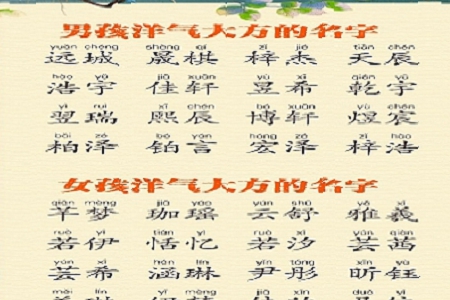 男孩洋气大方的名字
yuǎn chéng shèng qí zǐ jié tiān chén
远珹 晟棋 梓杰 天辰
hào yǔ jiā xuān yù xī qián yǔ
浩宇 佳轩 昱希 乾宇
yì ruì xī chén bó xuān yù chén
翌瑞 熙辰 博轩 煜宸
bǎi zé bó yán hóng zé zǐ hào
柏泽 铂言 宏泽 梓浩
女孩洋气大方的名字
qiān mèng jiā yáo yún shū yǎ xī
芊梦 珈瑶 云舒 雅羲
ruò yī tián yì ruò xī yún
若伊 恬忆 若汐 芸
yún xī hán lín yǐn tóng xīn yù
芸希 涵琳 尹彤 昕钰